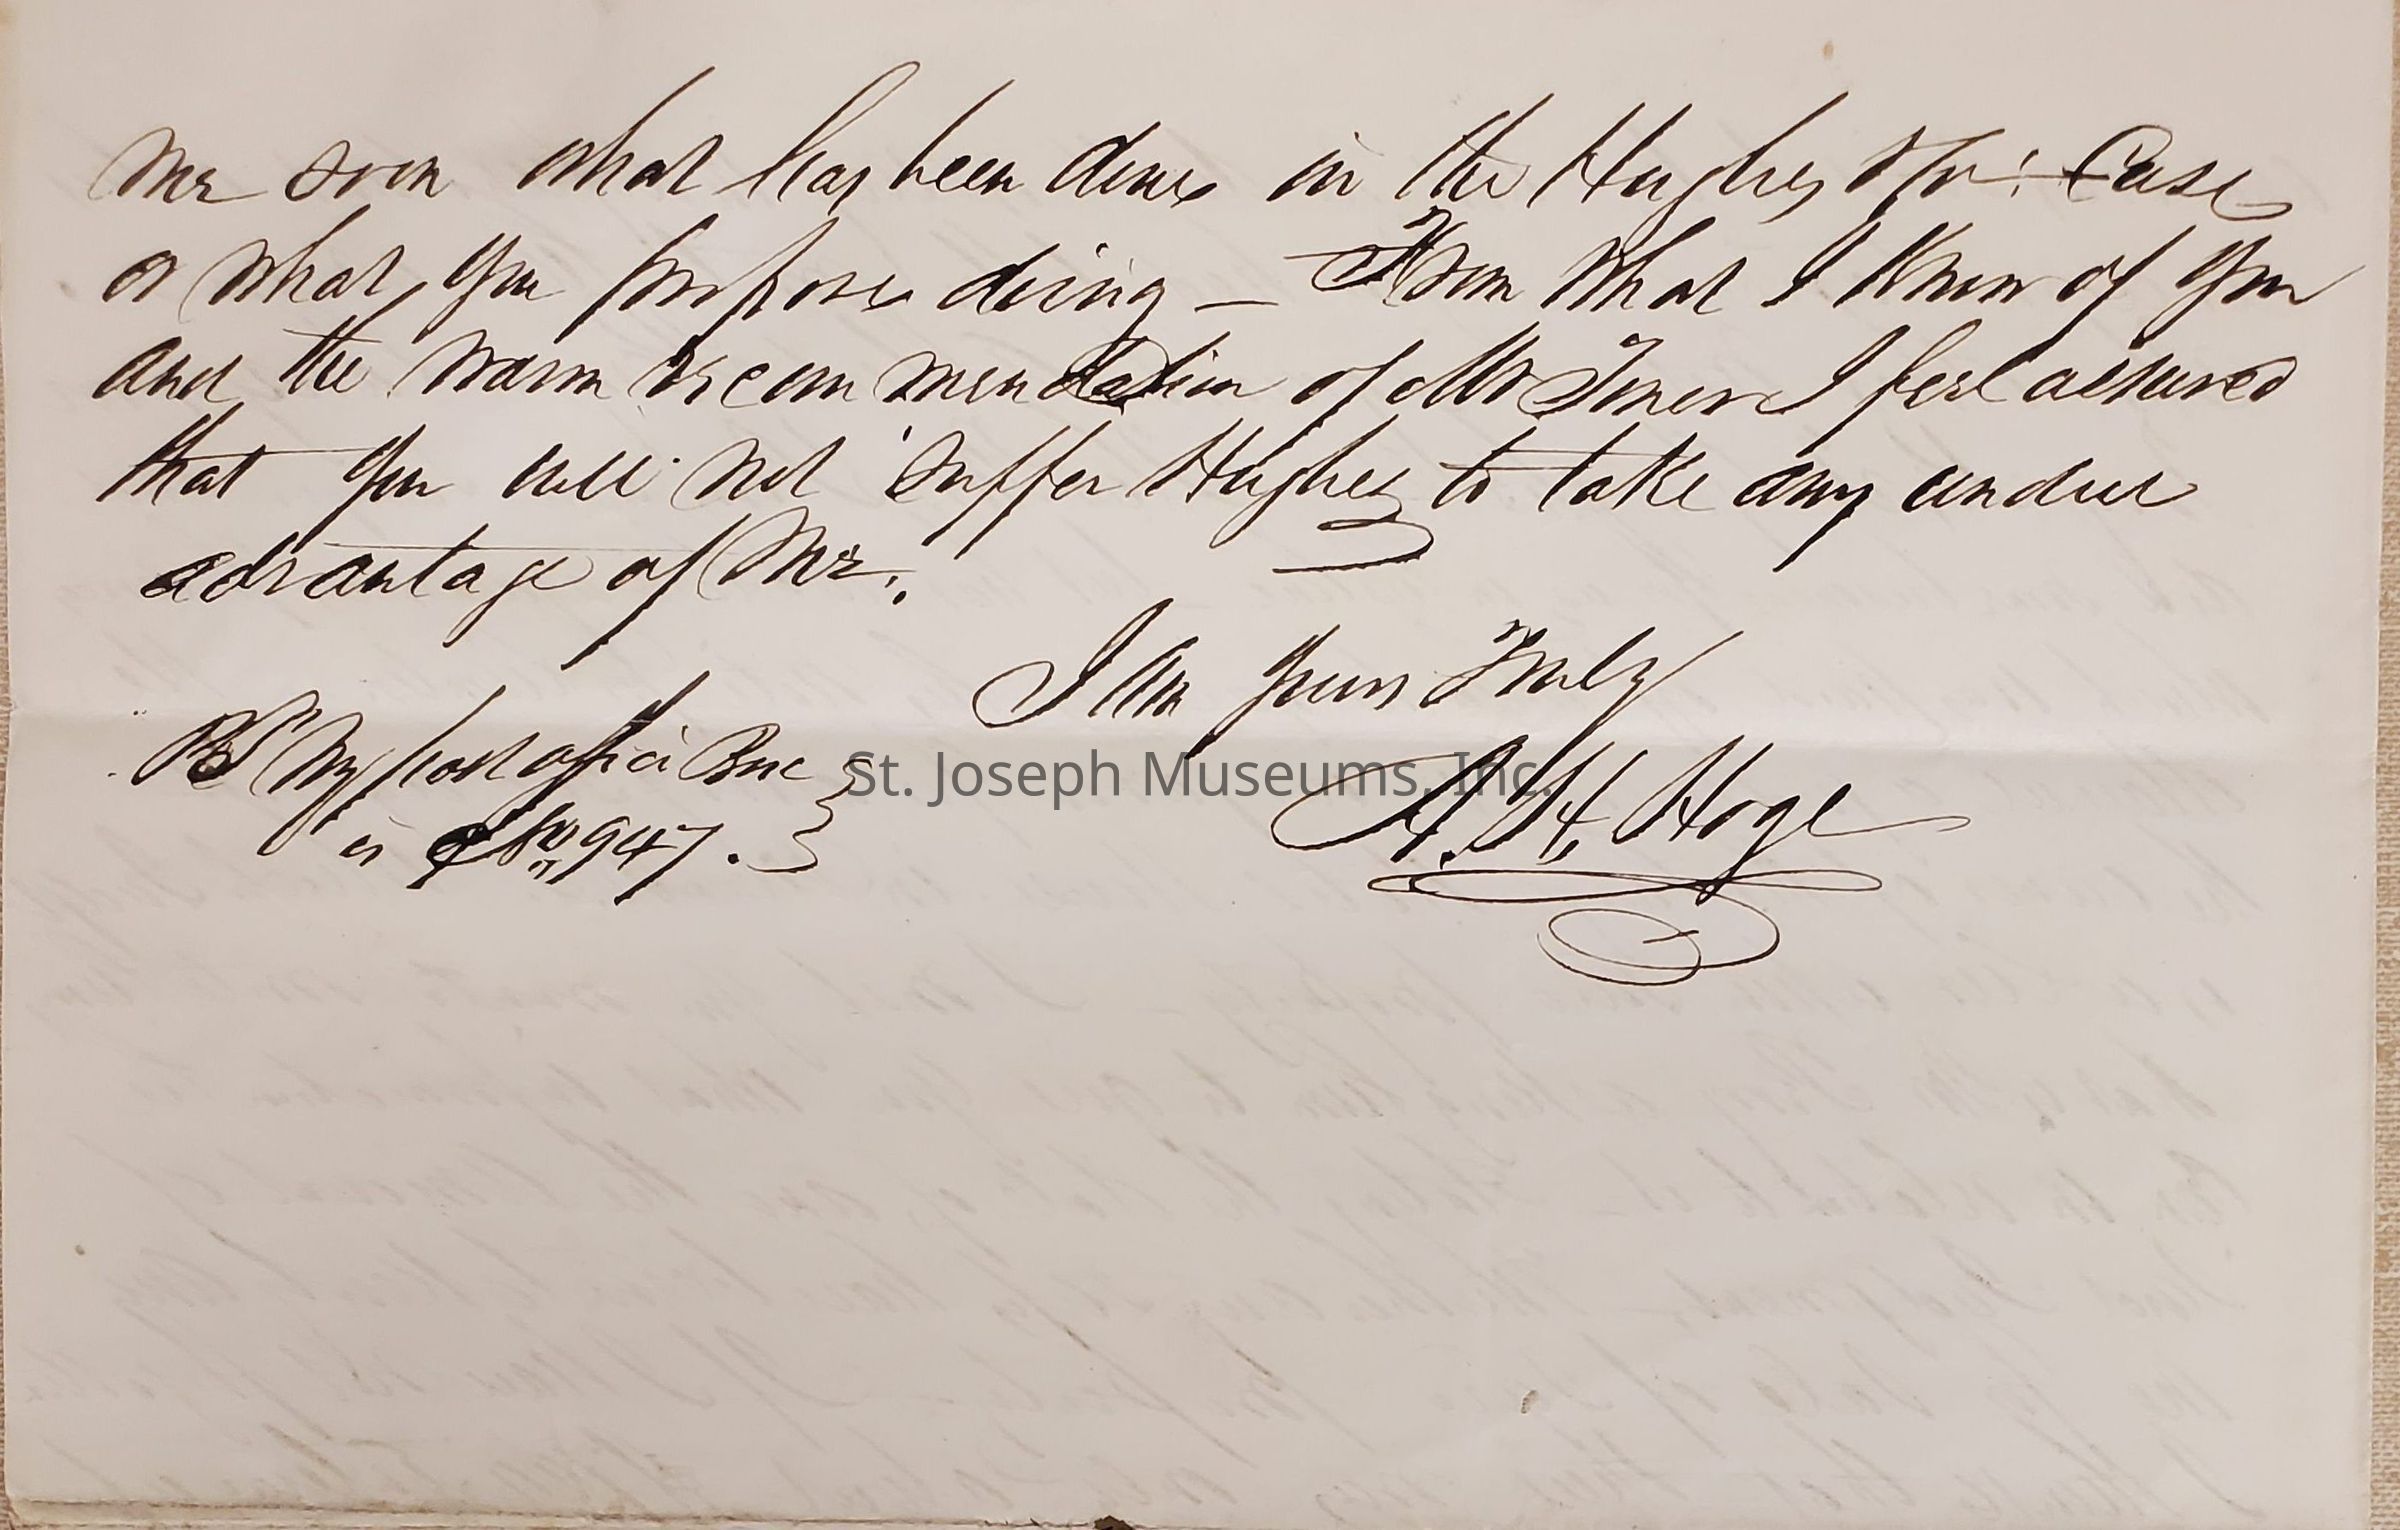 me soon what has been done in the Hughes &c: Case
or what you propose doing — From what I know of you
and the warm recommendation of Mr I feel assured
that you will not suffer Hughes to take any undue
advantage of me.
I am yours Truly
A. H. Hoge
PS My post office Box
is No 947.
St. Joseph Museums, Inc.